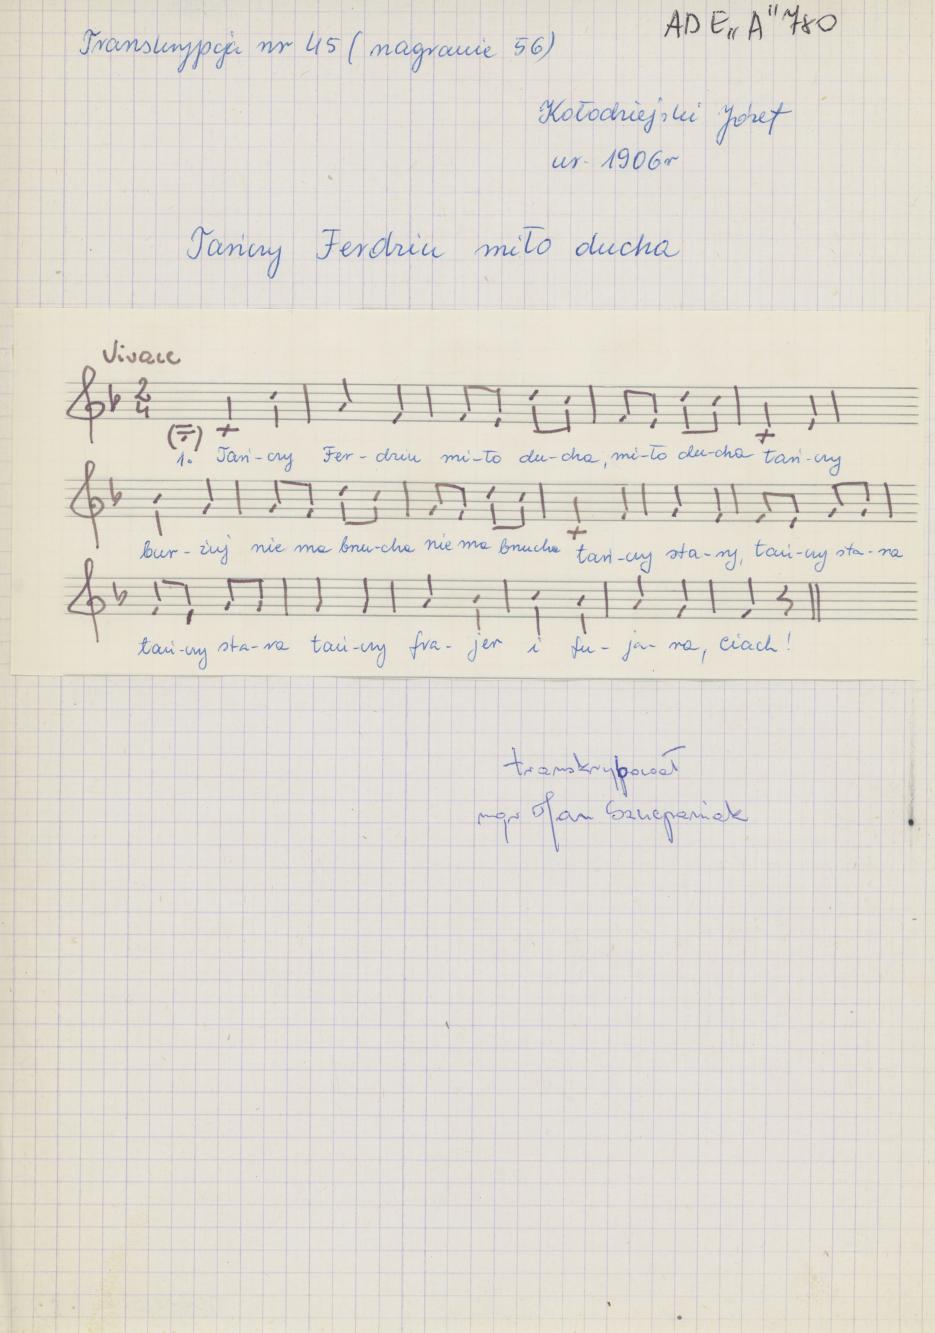 AD E„A" 780
Transkrypcja nr 45 ( nagranie 56)
Kołodziejski Józef
ur. 1906r
Tańczy Ferdziu miło ducha
Vivace
2
4
1. Tań-czy Fer-dziu mi-ło du-cha, mi-ło du-cha tań-czy
bur-żuj nie ma brzu-cha nie ma brzucha tań-czy sta-ry, tań-czy sta-ra
tań-czy sta-ra tań-czy fra-jer i fu-ja-ra, ciach!
transkrybował
mgr Jan Szczepaniak